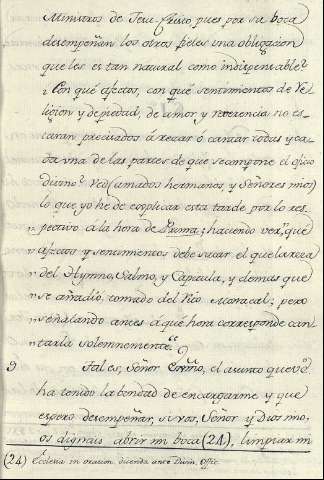 Ministros de Jesu-Christo, pues por su boca
desempeñan los otros fieles una obligacion
que les es tan natural como indispensable?
¿Con qué afectos, con qué sentimientos de Re-
ligion y de piedad, de amor y reverencia no es-
taran precisados á rezar ó cantar todas y ca-
da una de las partes de que se compone el oficio
divino? Ved (amados hermanos, y Señores mios)
lo que yo he de explicar esta tarde por lo res-
" pectivo a la hora de Prima; haciendo ver, "que
" afectos y sentimientos debe sacar el que la reza
" del Hymno, Salmo, y Capitula, y demas que
" se añadió tomado del Rito Monacal; pero
" señalando antes á qué hora corresponde can-
" tarla solemnemente."
9 Tal es, Señor Exmo, el asunto que
ha tenido la bondad de encargarme y que
espero desempeñar, si vos, Señor y Dios mio,
os dignais abrir mi boca (24), limpiar mi
(24) Ecclesia in oration. dicenda ante Divin. Offic.